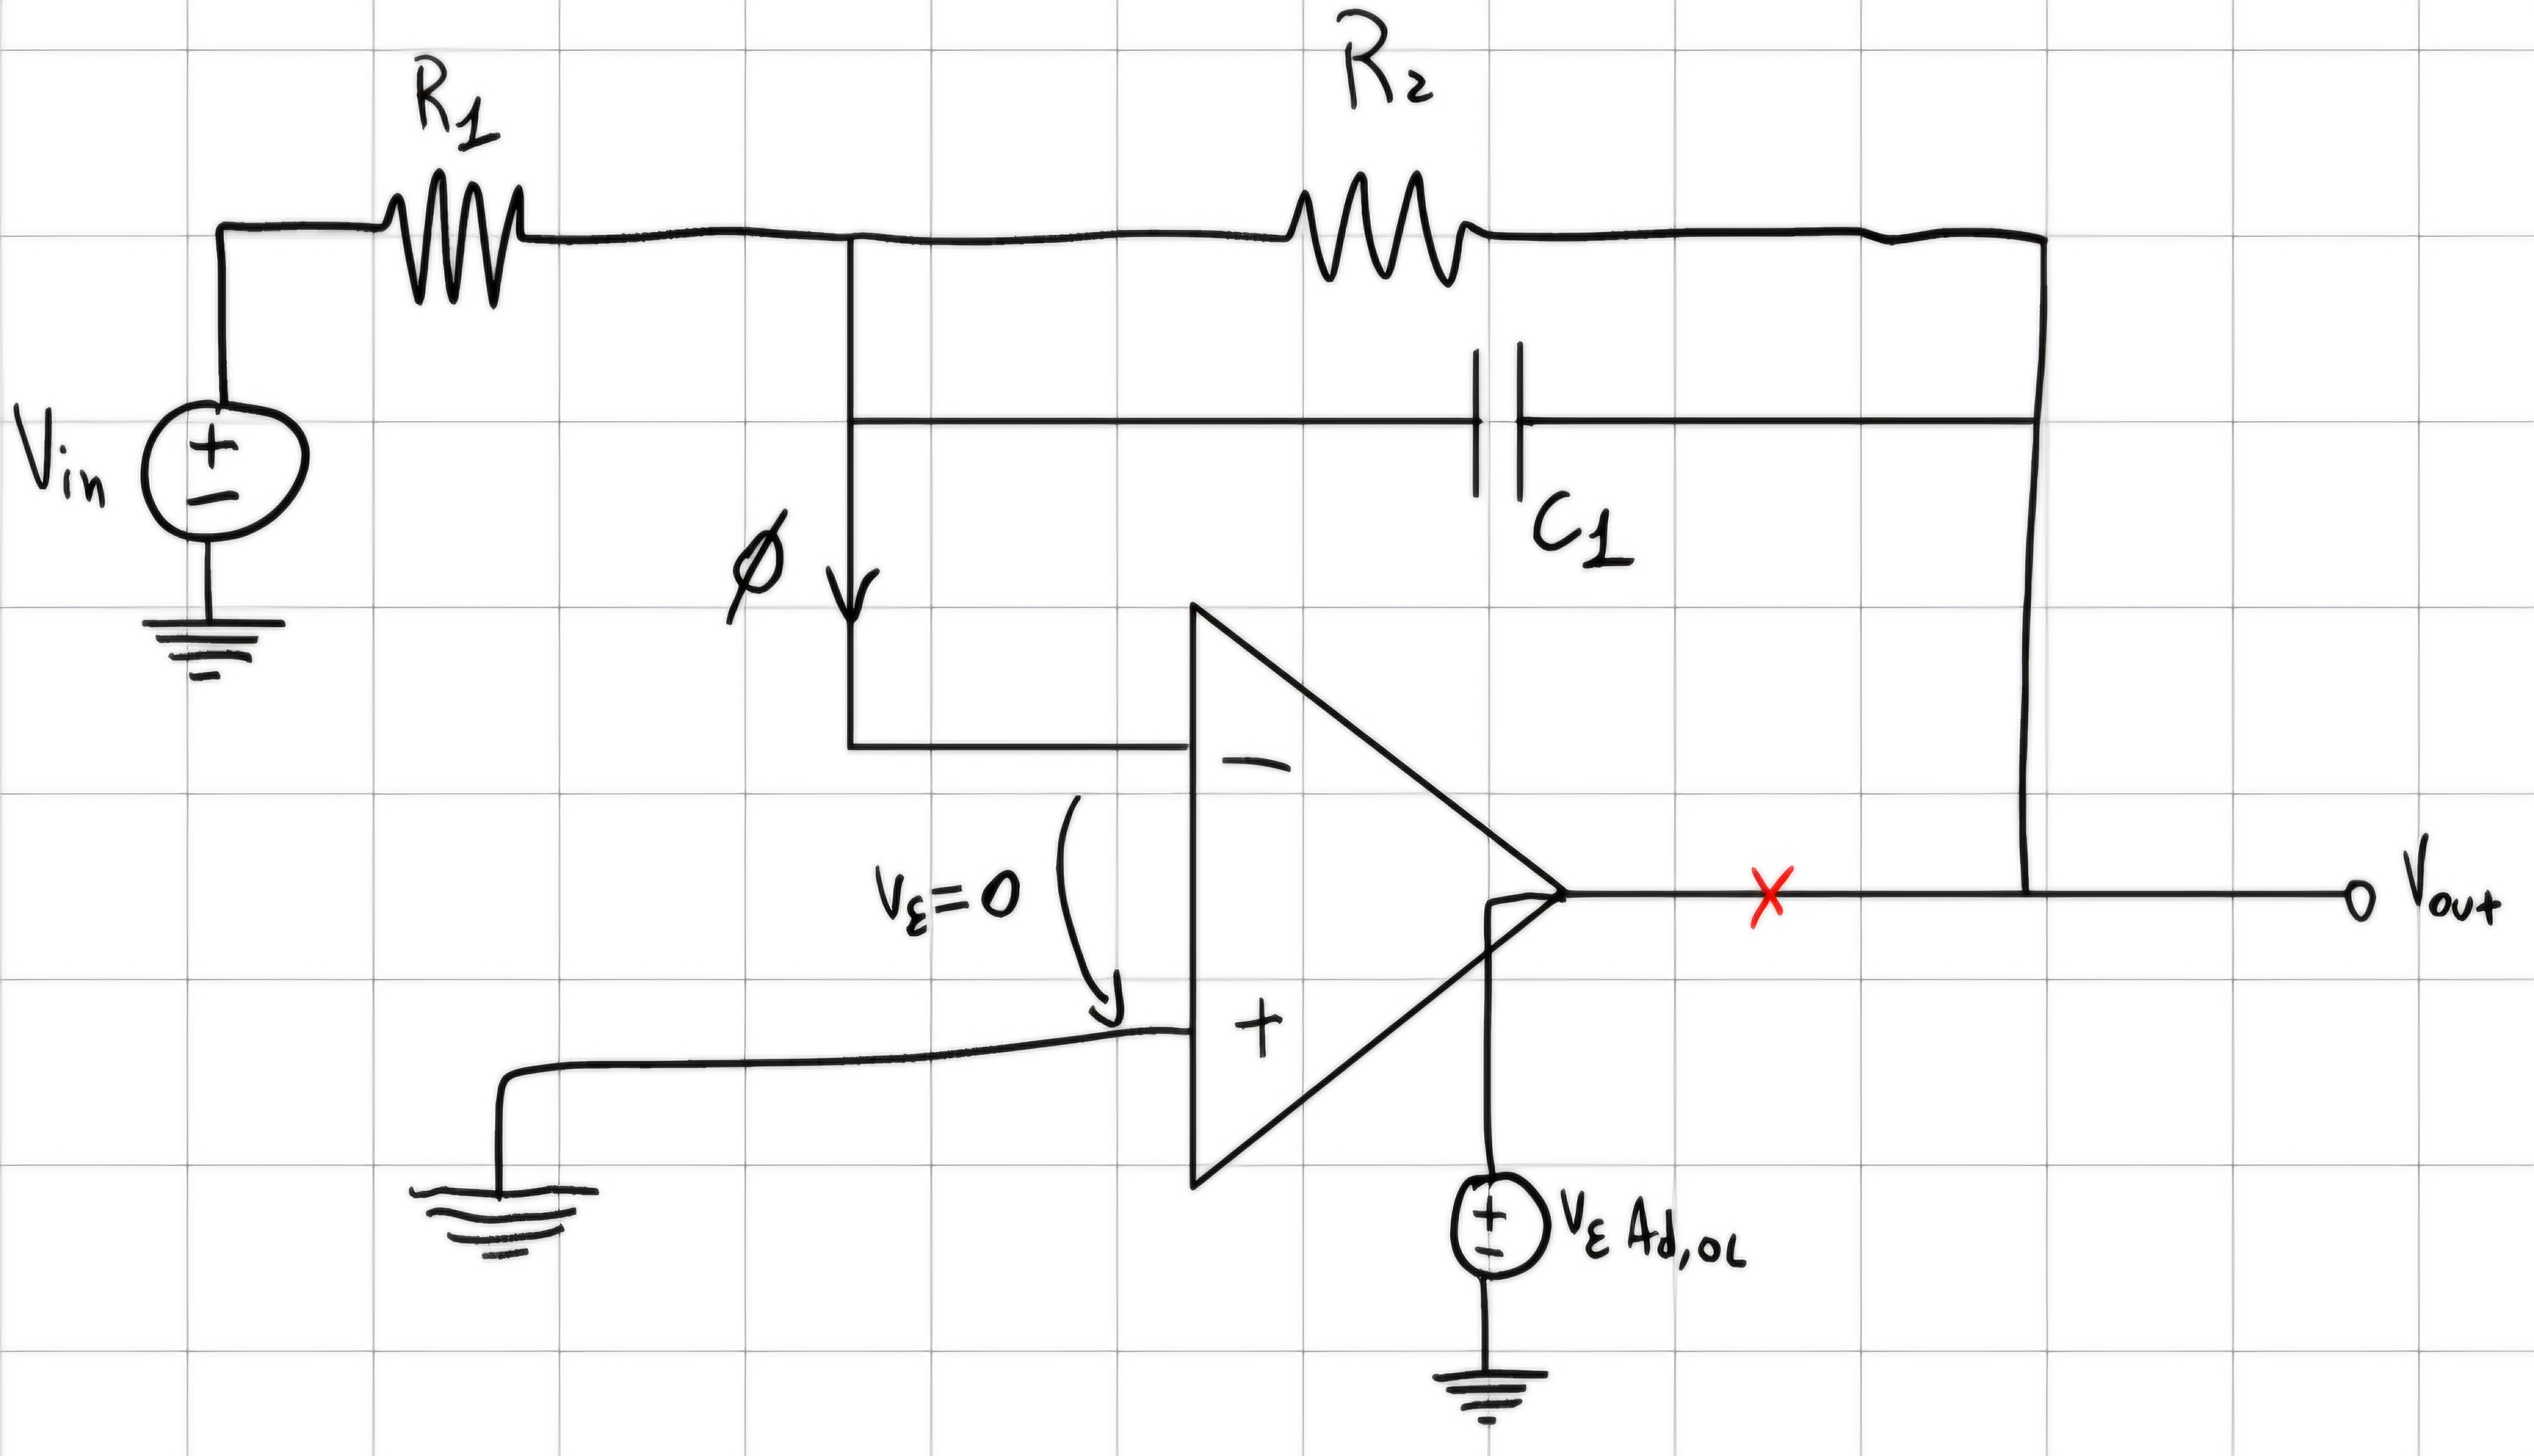 R1
R2
Vin
+
−
C1
∅
−
Vε=0
+
Vout
+
−
Vε Ad,OL